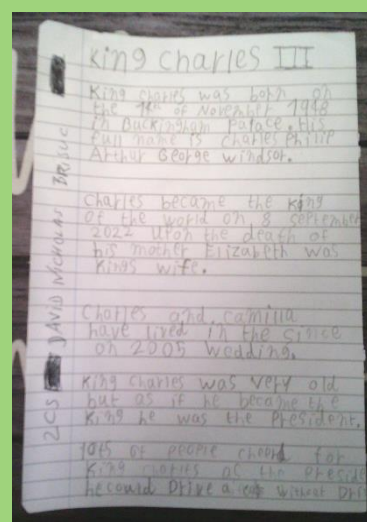 King Charles III
King Charles was born on
the 14th of November 1948
in Buckingham Palace. His
full name is Charles Philip
Arthur George Windsor.
Charles became the King
of the world on 8 September
2022 upon the death of
his mother Elizabeth was
Kings wife.
Charles and camilla
have lived in the since
on 2005 wedding.
King Charles was very old
but as if he became the
King he was the President.
lots of people for
King Charles as the Preside
he could Drive a without
2CS DAVID NICHOLAS